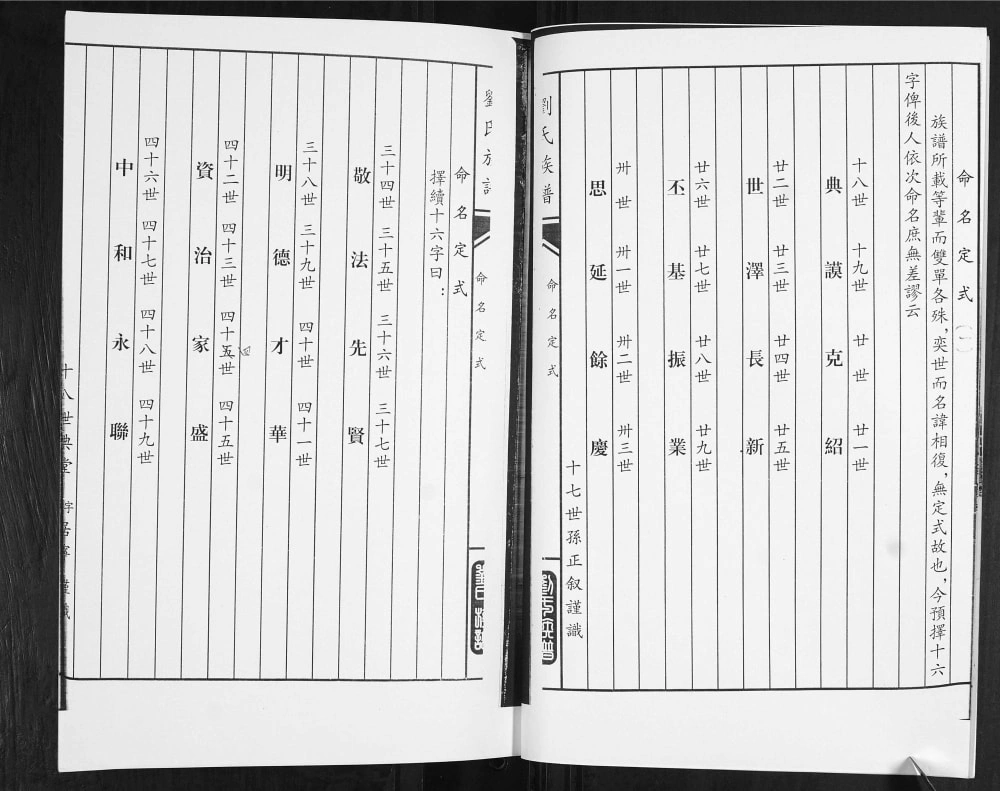 命名定式（一）
族譜所載等輩而雙單各殊，奕世而名諱相復，無定式故也，今預擇十六
字俾後人依次命名庶無差謬云
十八世　十九世　廿世　廿一世
典　謨　克　紹
廿二世　廿三世　廿四世　廿五世
世　澤　長　新
廿六世　廿七世　廿八世　廿九世
丕　基　振　業
卅世　卅一世　卅二世　卅三世
思　延　餘　慶
十七世孫正叙謹識
劉氏族譜
命名定式
劉氏族譜
劉氏族譜
命名定式
命名定式
擇續十六字曰：
三十四世　三十五世　三十六世　三十七世
敬　法　先　賢
三十八世　三十九世　四十世　四十一世
明　德　才　華
四十二世　四十三世　四十五世　四十五世
四
資　治　家　盛
四十六世　四十七世　四十八世　四十九世
中　和　永　聯
十八世典堂　字